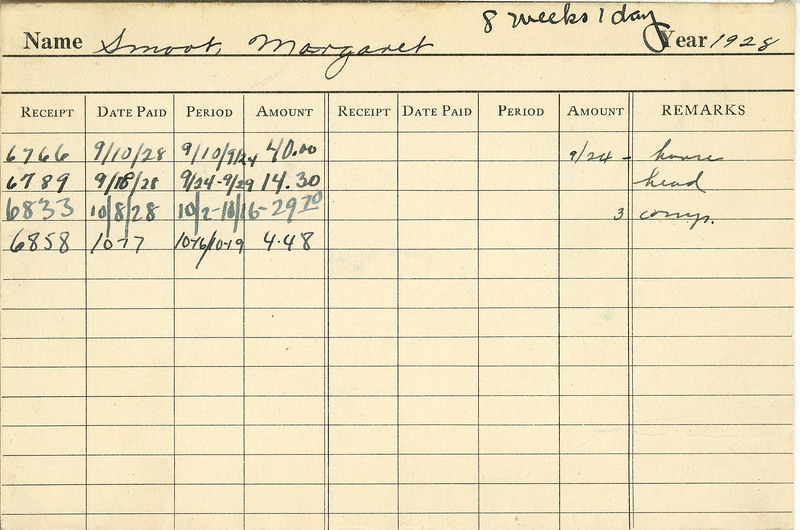 8 weeks 1 day
Name Smoot, Margaret Year 1928
RECEIPT DATE PAID PERIOD AMOUNT RECEIPT DATE PAID PERIOD AMOUNT REMARKS
6766 9/10/28 9/10/9/24 40.00 9/24 - house
6789 9/18/28 9/24-9/29 14.30 head
6833 10/8/28 10/2-10/16- 29.70 3 comp.
6858 10-17 10-16/10-19 4.48